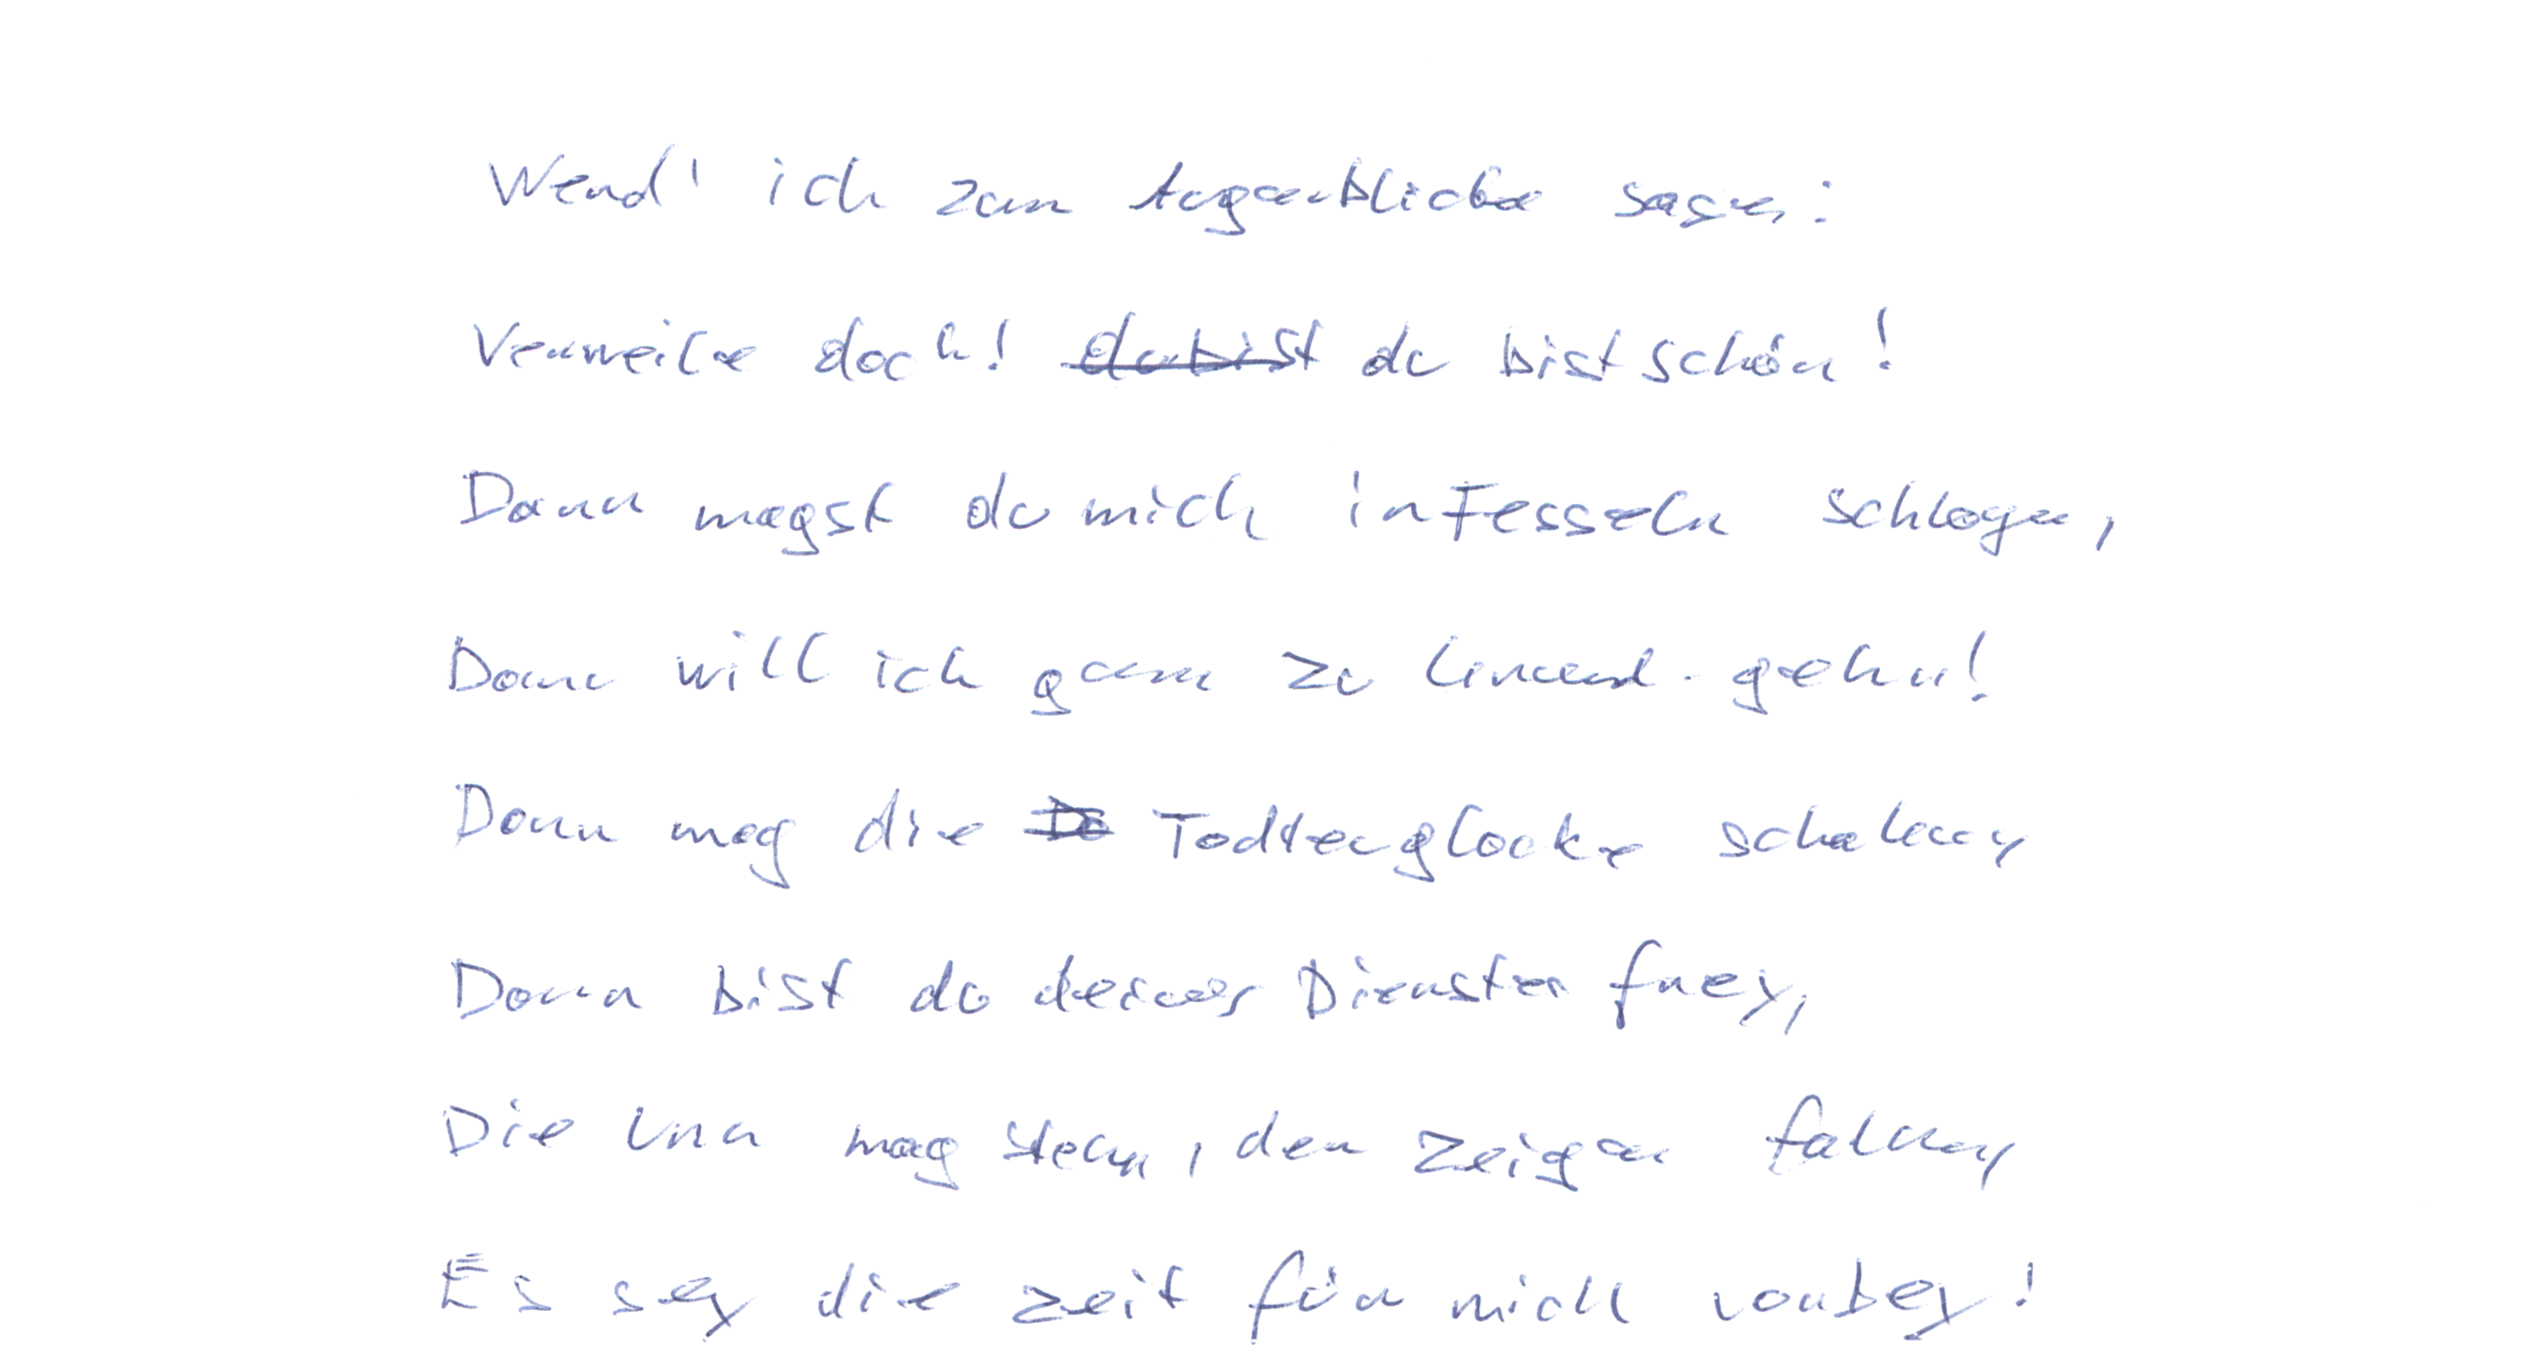 Werd' ich zum Augenblicke sagen:
Verweile doch! du bist du bist schön!
Dann magst du mich in Fesseln schlagen,
Dann will ich gern zu gehn!
Dann mag die To Todtenglocke schallen,
Dann bist du deines Dienstes frey,
Die Uhr mag stehn, der Zeiger fallen,
Es sey die Zeit für mich vorbey!